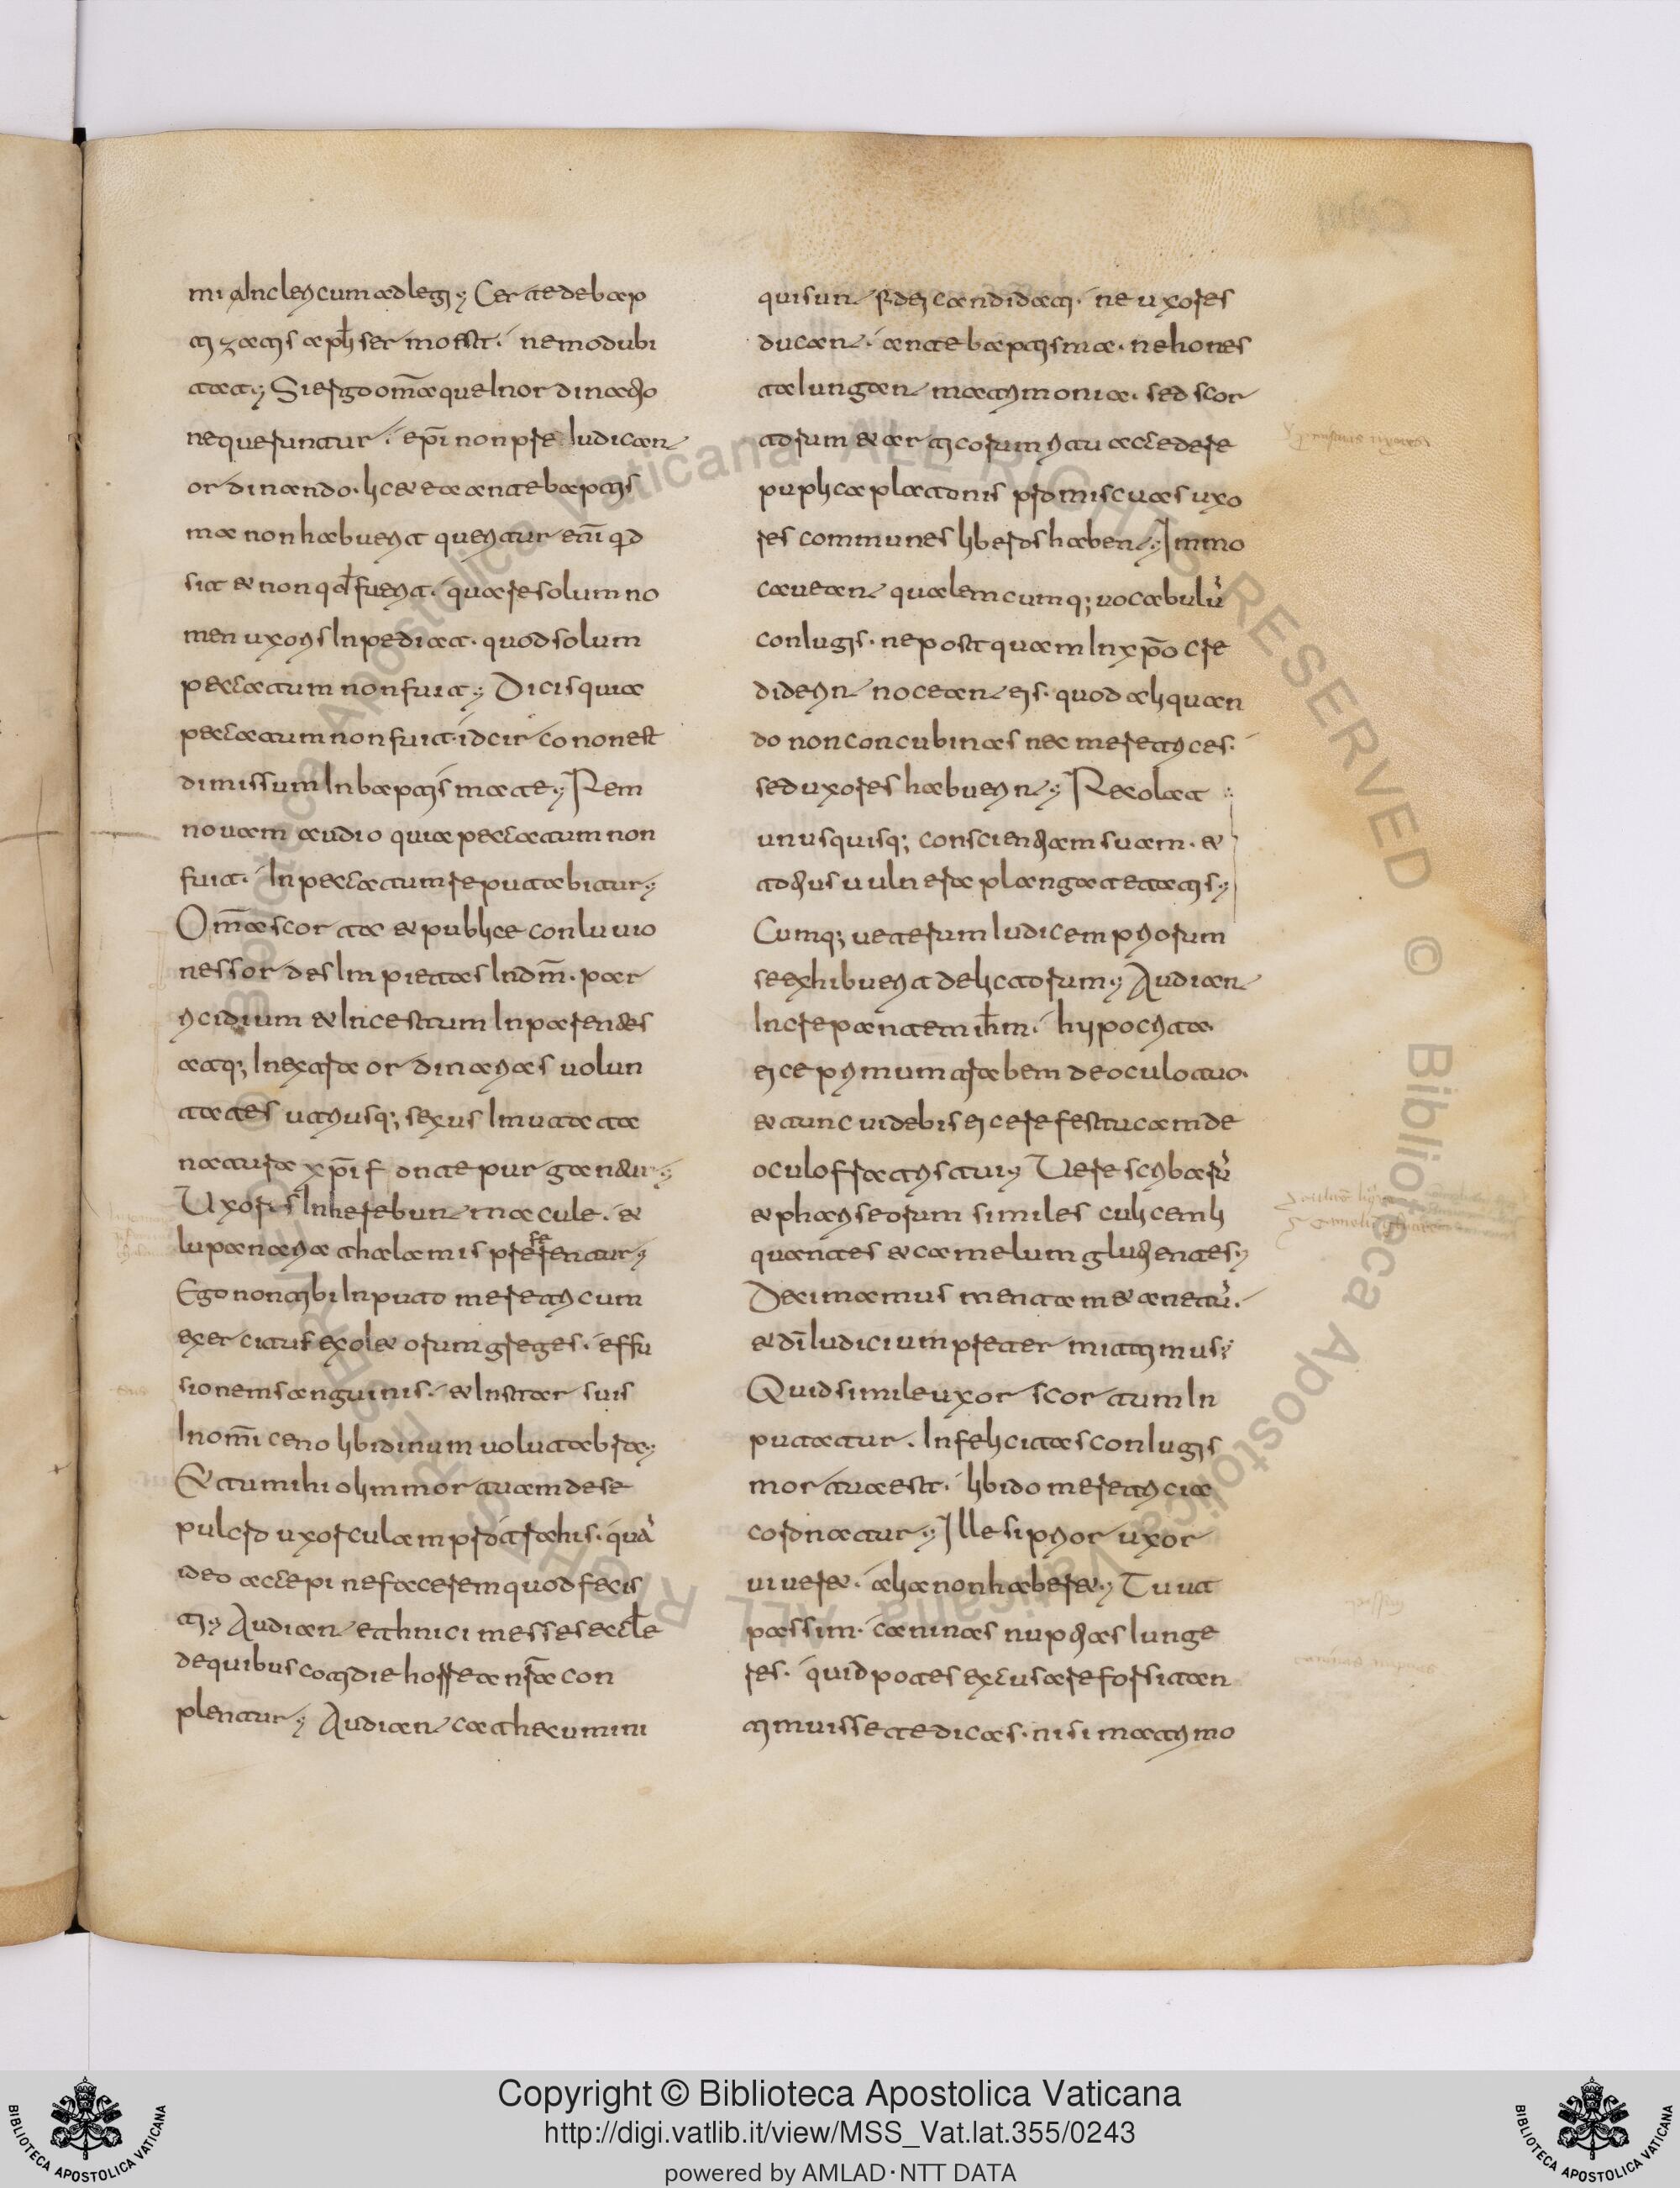 mi alnclericum adlegi; Certe de bap
tizatis aplī sermo est. nemo dubi
tat; Si ergo om̄a quae In ordinatio
ne queruntur. ep̄i non pre Iudican
ordinando. licet ea ante baptis
ma non habuerit queritur enī qd
sit et non qd fuerit. quare solum no
men uxoris Inpediat. quod solum
peccatum non fuit; Dicis quia
peccatum non fuit. idcirco non est
dimissum In baptismate; Rem
nouam audio quia peccatum non
fuit. In peccatum reputabitur;
Om̄a scorta et publice conluuio
nes sordes Impietas In dm̄. par
ricidium et Incestum In parentes
atq; In extra ordinarias uolun
tates utriusq; sexus Immutata
natura xp̄i fonte purgantur;
Uxores Inherebunt macule. et
lupanaria thalamis preferentur;
Ego non tibi Inputo meretricum
exercitus exoletorum greges. effu
sionem sanguinis. et Instar suis
In omī ceno libidinum uolutabra;
Et tu mihi olim mortuam de se
pulcro uxorculam protrahis. quā
ideo accepi ne facerem quod fecis
ti; Audiant ethnici messes ecclē
de quibus cotidie horrea nr̄a con
plentur; Audiant cathecumini
qui sunt fidei candidati. ne uxores
ducant. ante baptisma. ne hones
ta Iungant matrimonia. sed scor
torum et articorum ritu accedere
puplica platonis promiscuas uxo
res communes liberos habent; Immo
caueant qualemcumq; uocabulū
coniugis. ne postquam In xp̄o cre
diderint noceat eis. quod aliquan
do non concubinas nec meretrices.
sed uxores habuerint; Recolat
unusquisq; conscientiam suam. et
totius uulnera plangat etatis;
Cumq; ueterum Iudicem priorum
se exhibuerit delictorum; Audiant
Increpantem ihm. hypocrita.
eice primum trabem de oculo tuo.
et tunc uidebis eicere festucam de
oculo fratris tui; Uere scribarū
et phariseorum similes culicem li
quantes et camelum glutientes;
Decimamus mentam et anetū.
et dī Iudicium pretermittimus;
Quid simile uxor scortum In
putatur. Infelicitas coniugis
mortua est. libido meretricia
coronatur; Ille si prior uxor
uiueret. alia non haberet; Tu ut
passim caninas nuptias Iunge
res. quid potes excusare forsitan
timuisse te dicas. nisi matrimo
Copyright © Biblioteca Apostolica Vaticana
http://digi.vatlib.it/view/MSS_Vat.lat.355/0243
powered by AMLAD·NTT DATA